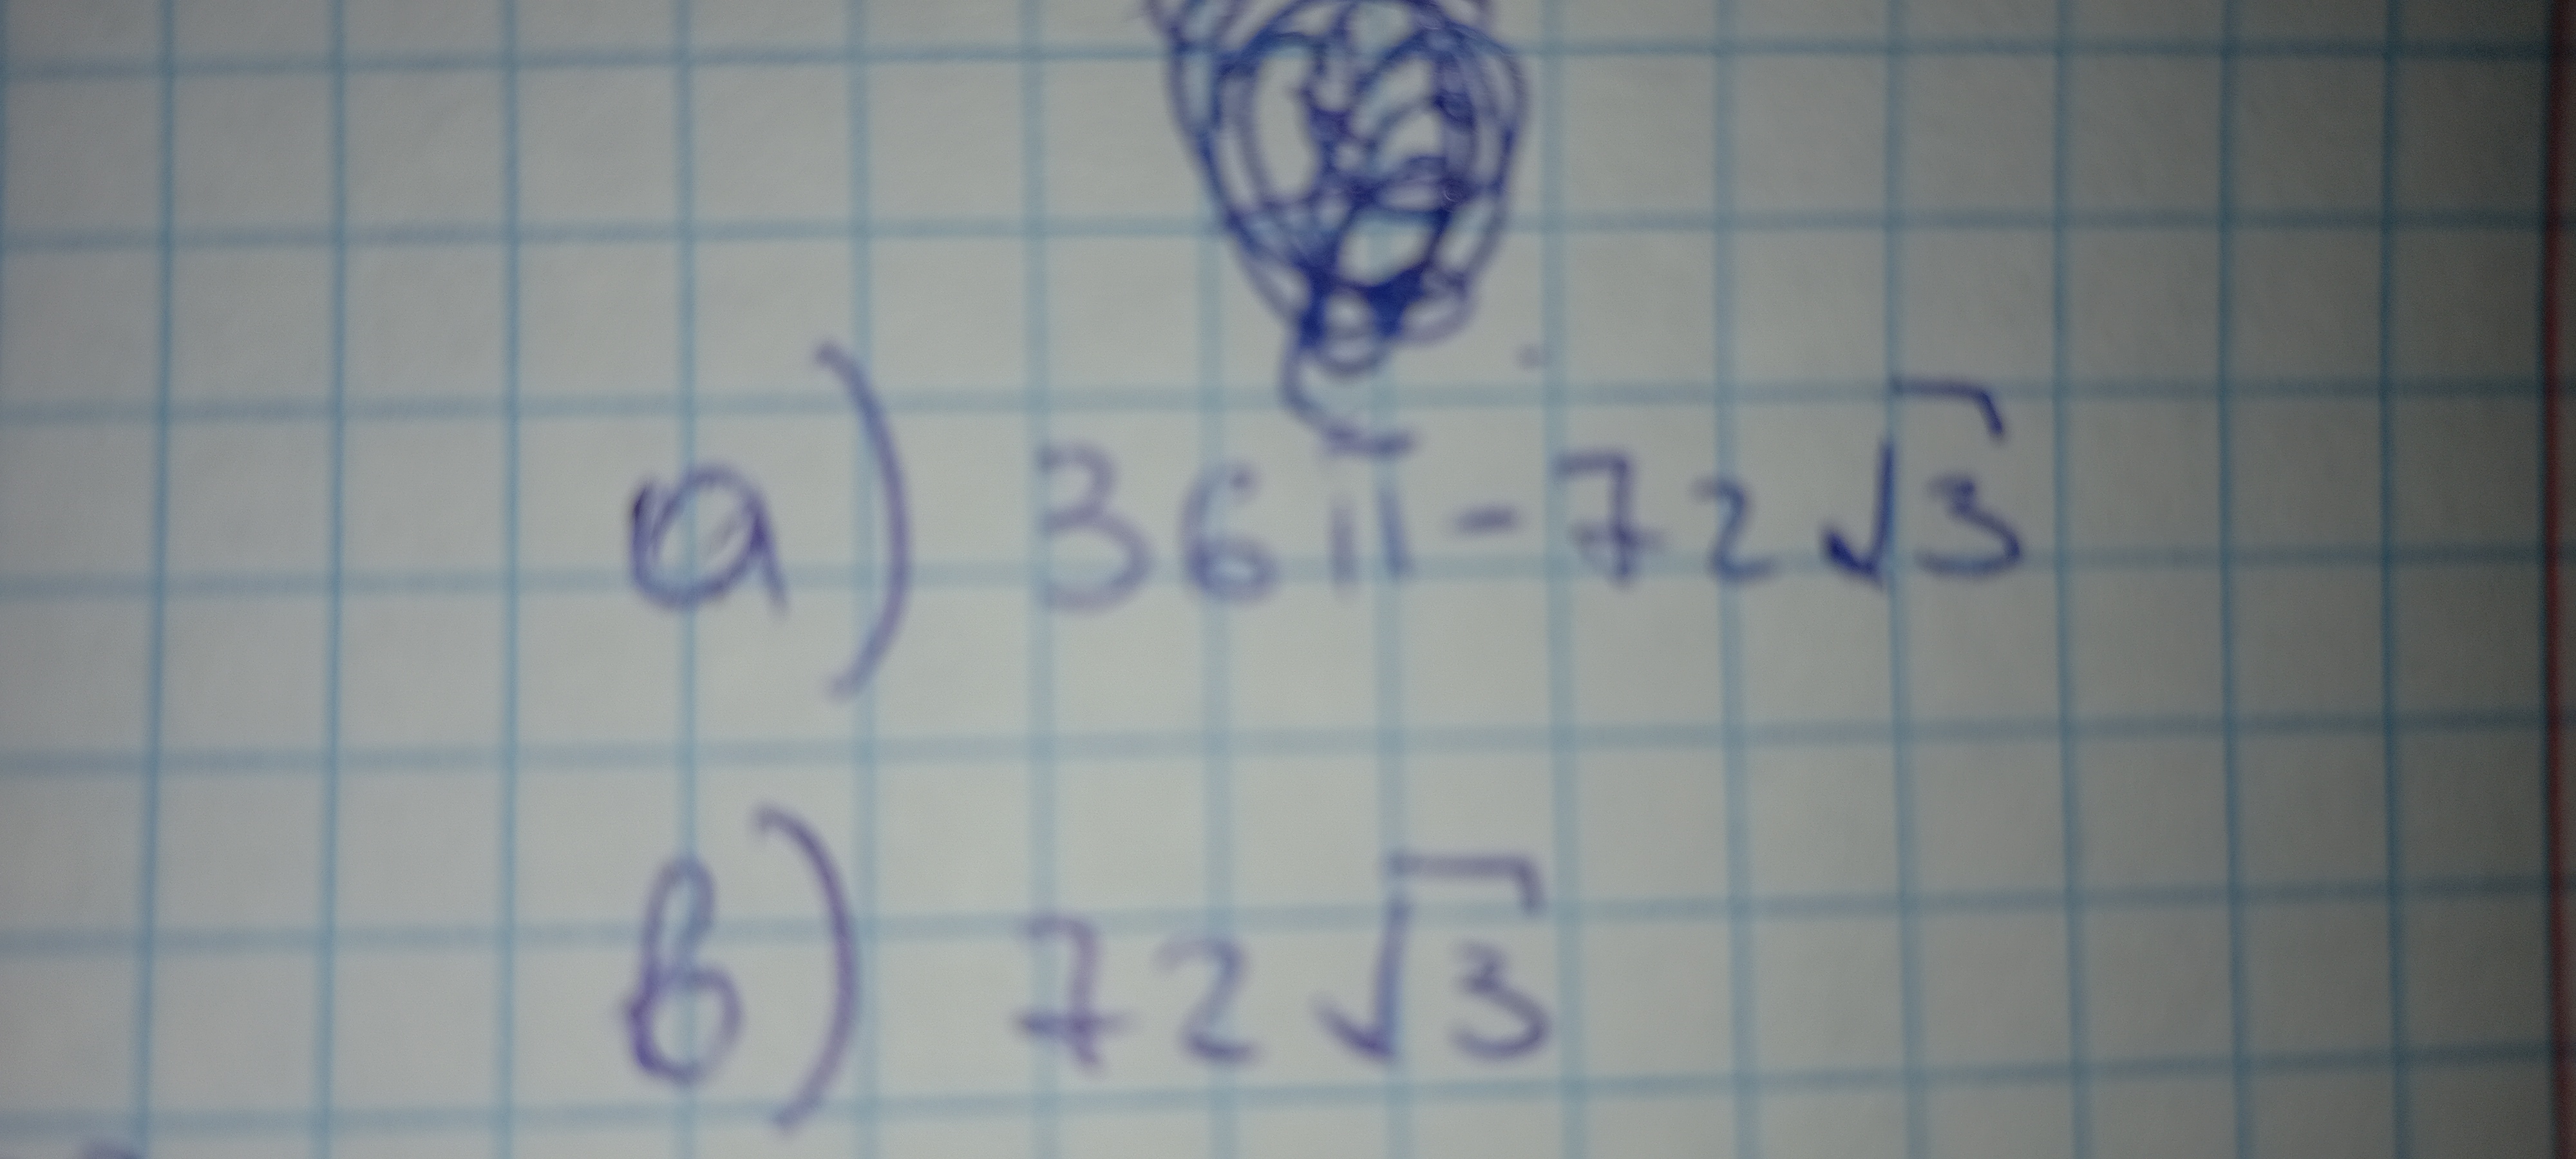 а) 36π - 72√3
в) 72√3